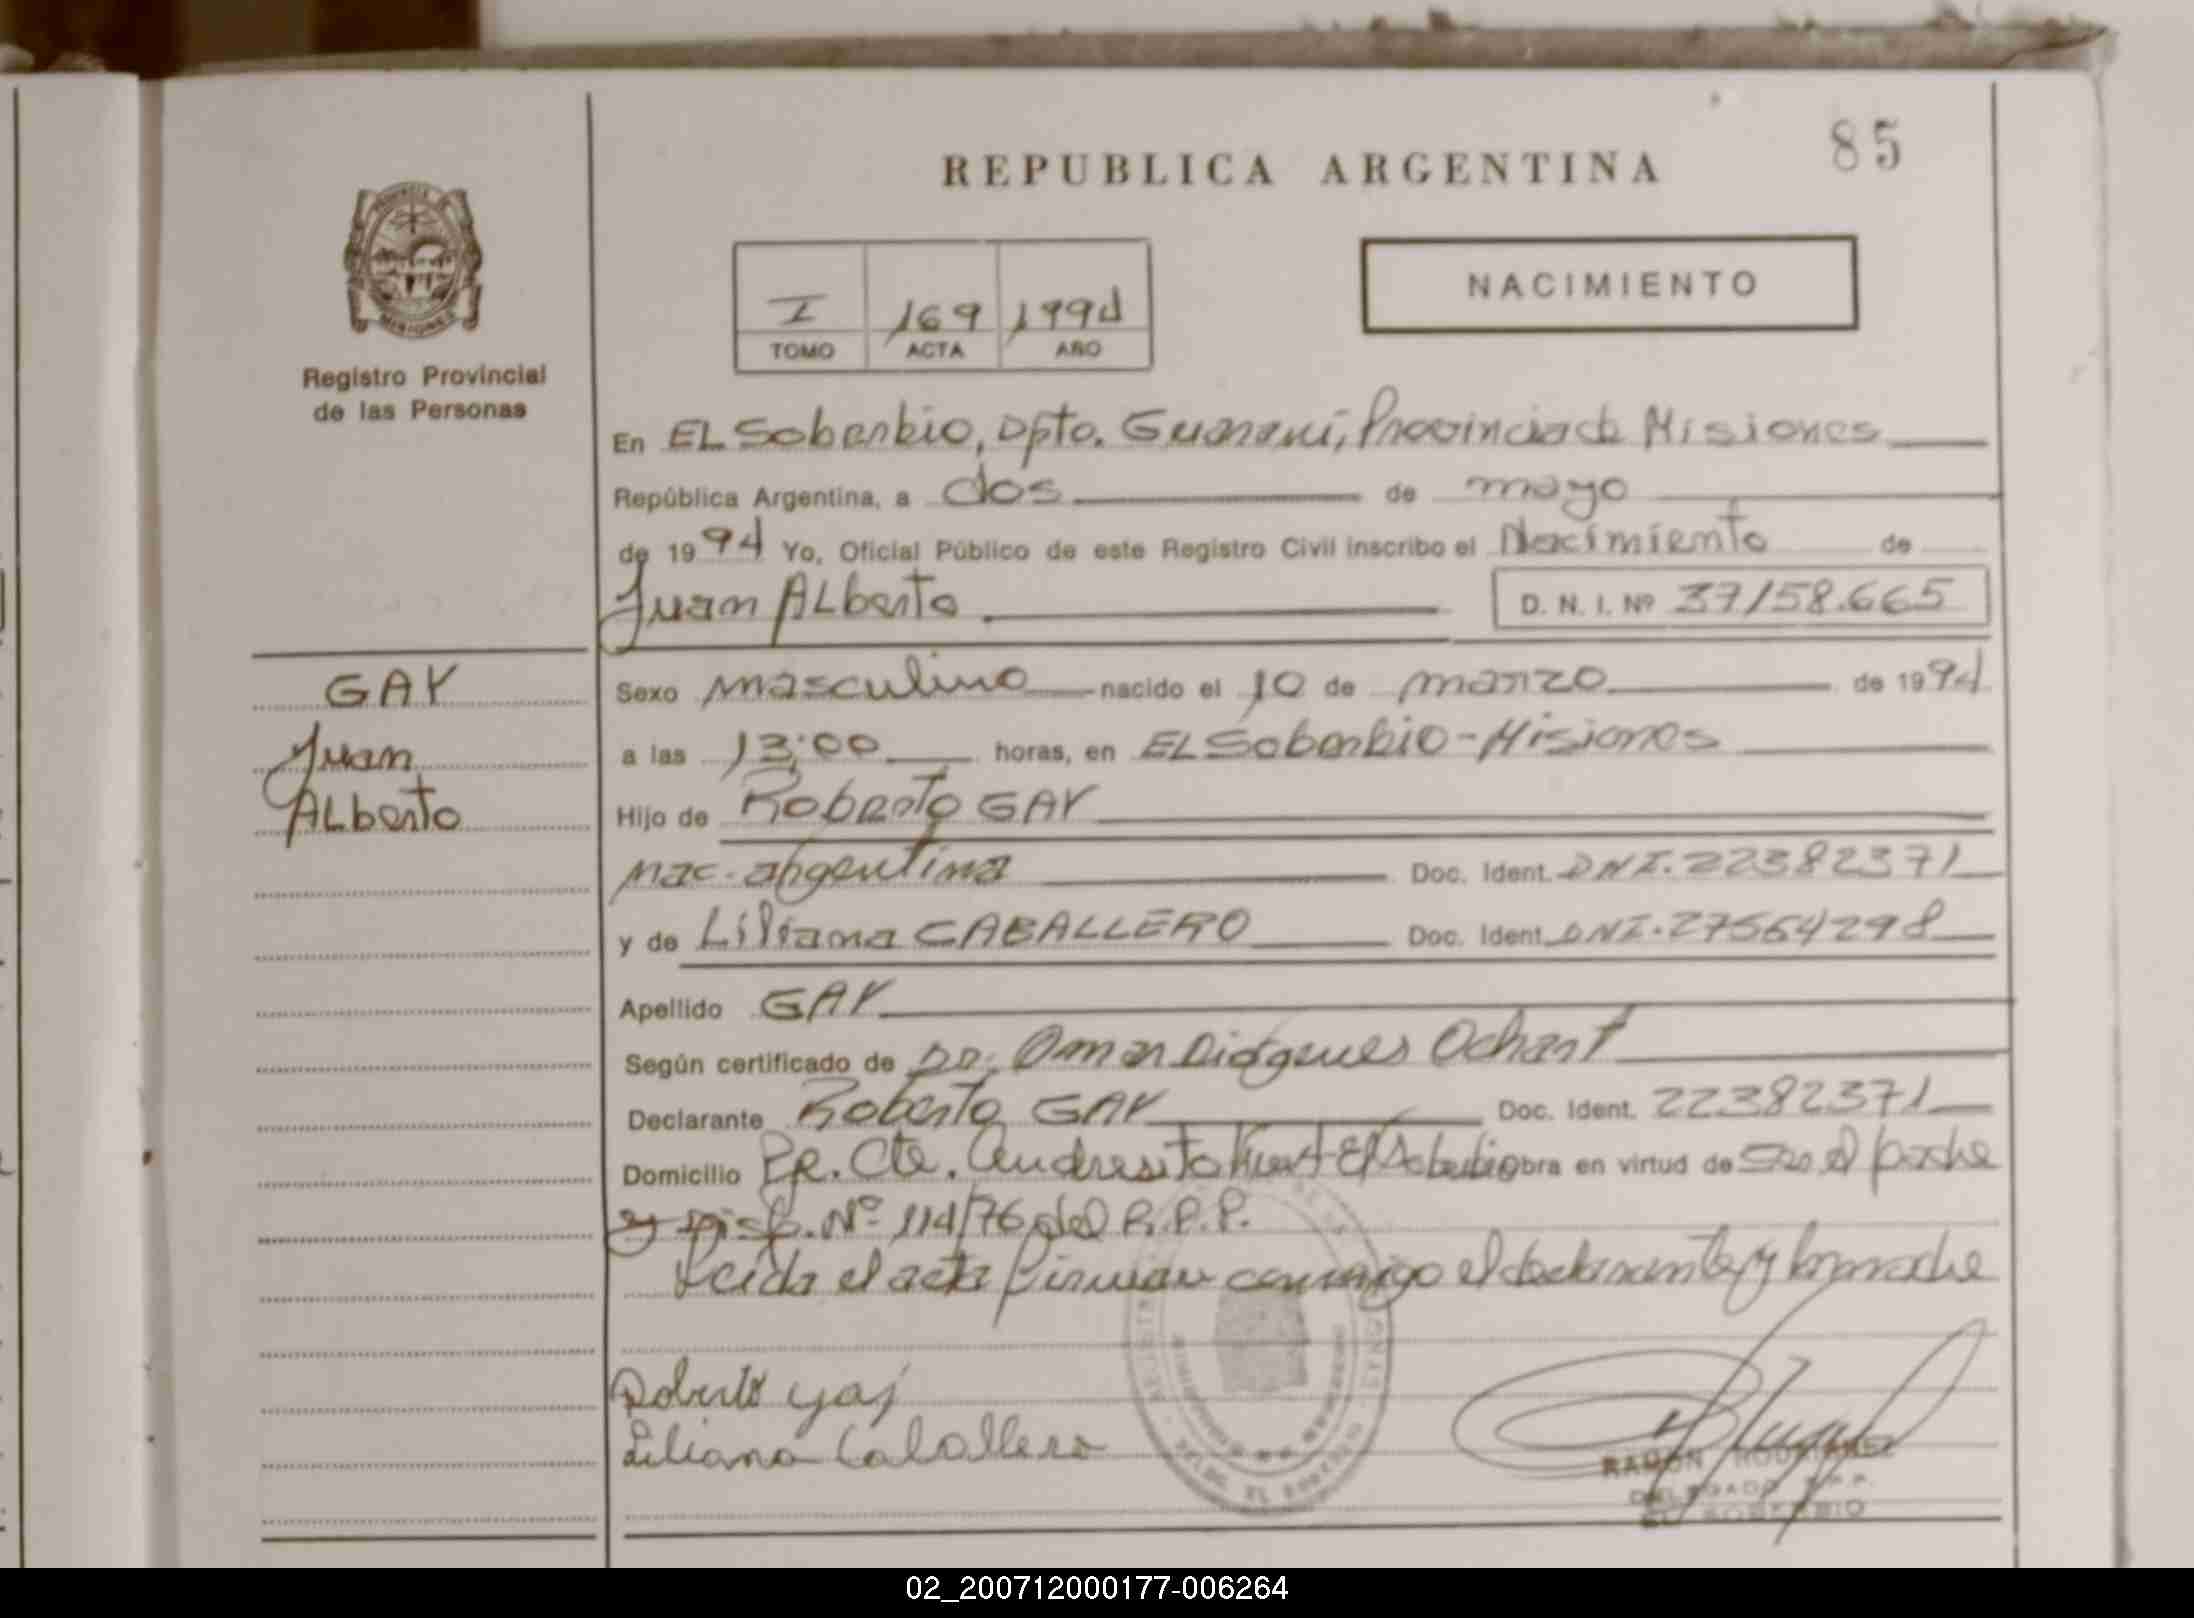 85
REPUBLICA ARGENTINA
NACIMIENTO
I 169 1994
TOMO ACTA AÑO
MISIONES
Registro Provincial
de las Personas
En EL Soberbio, Dpto. Guaraní, Provincia de Misiones
República Argentina, a dos de mayo
de 1994 Yo, Oficial Público de este Registro Civil inscribo el Nacimiento de
Juan ALberto D. N. I. Nº 37158.665
GAY
Juan
ALberto
Sexo masculino nacido el 10 de marzo de 1994
a las 13:00 horas, en EL Soberbio - Misiones
Hijo de Roberto GAY
nac. argentina Doc. Ident. DNI. 22382371
y de Liliana CABALLERO Doc. Ident. DNI. 27564298
Apellido GAY
Según certificado de Dr. Omar Diógenes Ochart
Declarante Roberto GAY Doc. Ident. 22382371
Domicilio Pje. Cte. Andresito El Soberbio obra en virtud de Ser el padre
y Disp. Nº 114/76 del R.P.P.
Leída el acta firman conmigo el declarante y la madre
Roberto gay
Liliana Caballero
RAMON RODRIGUEZ
DELEGADO R.P.P.
EL SOBERBIO
02_200712000177-006264